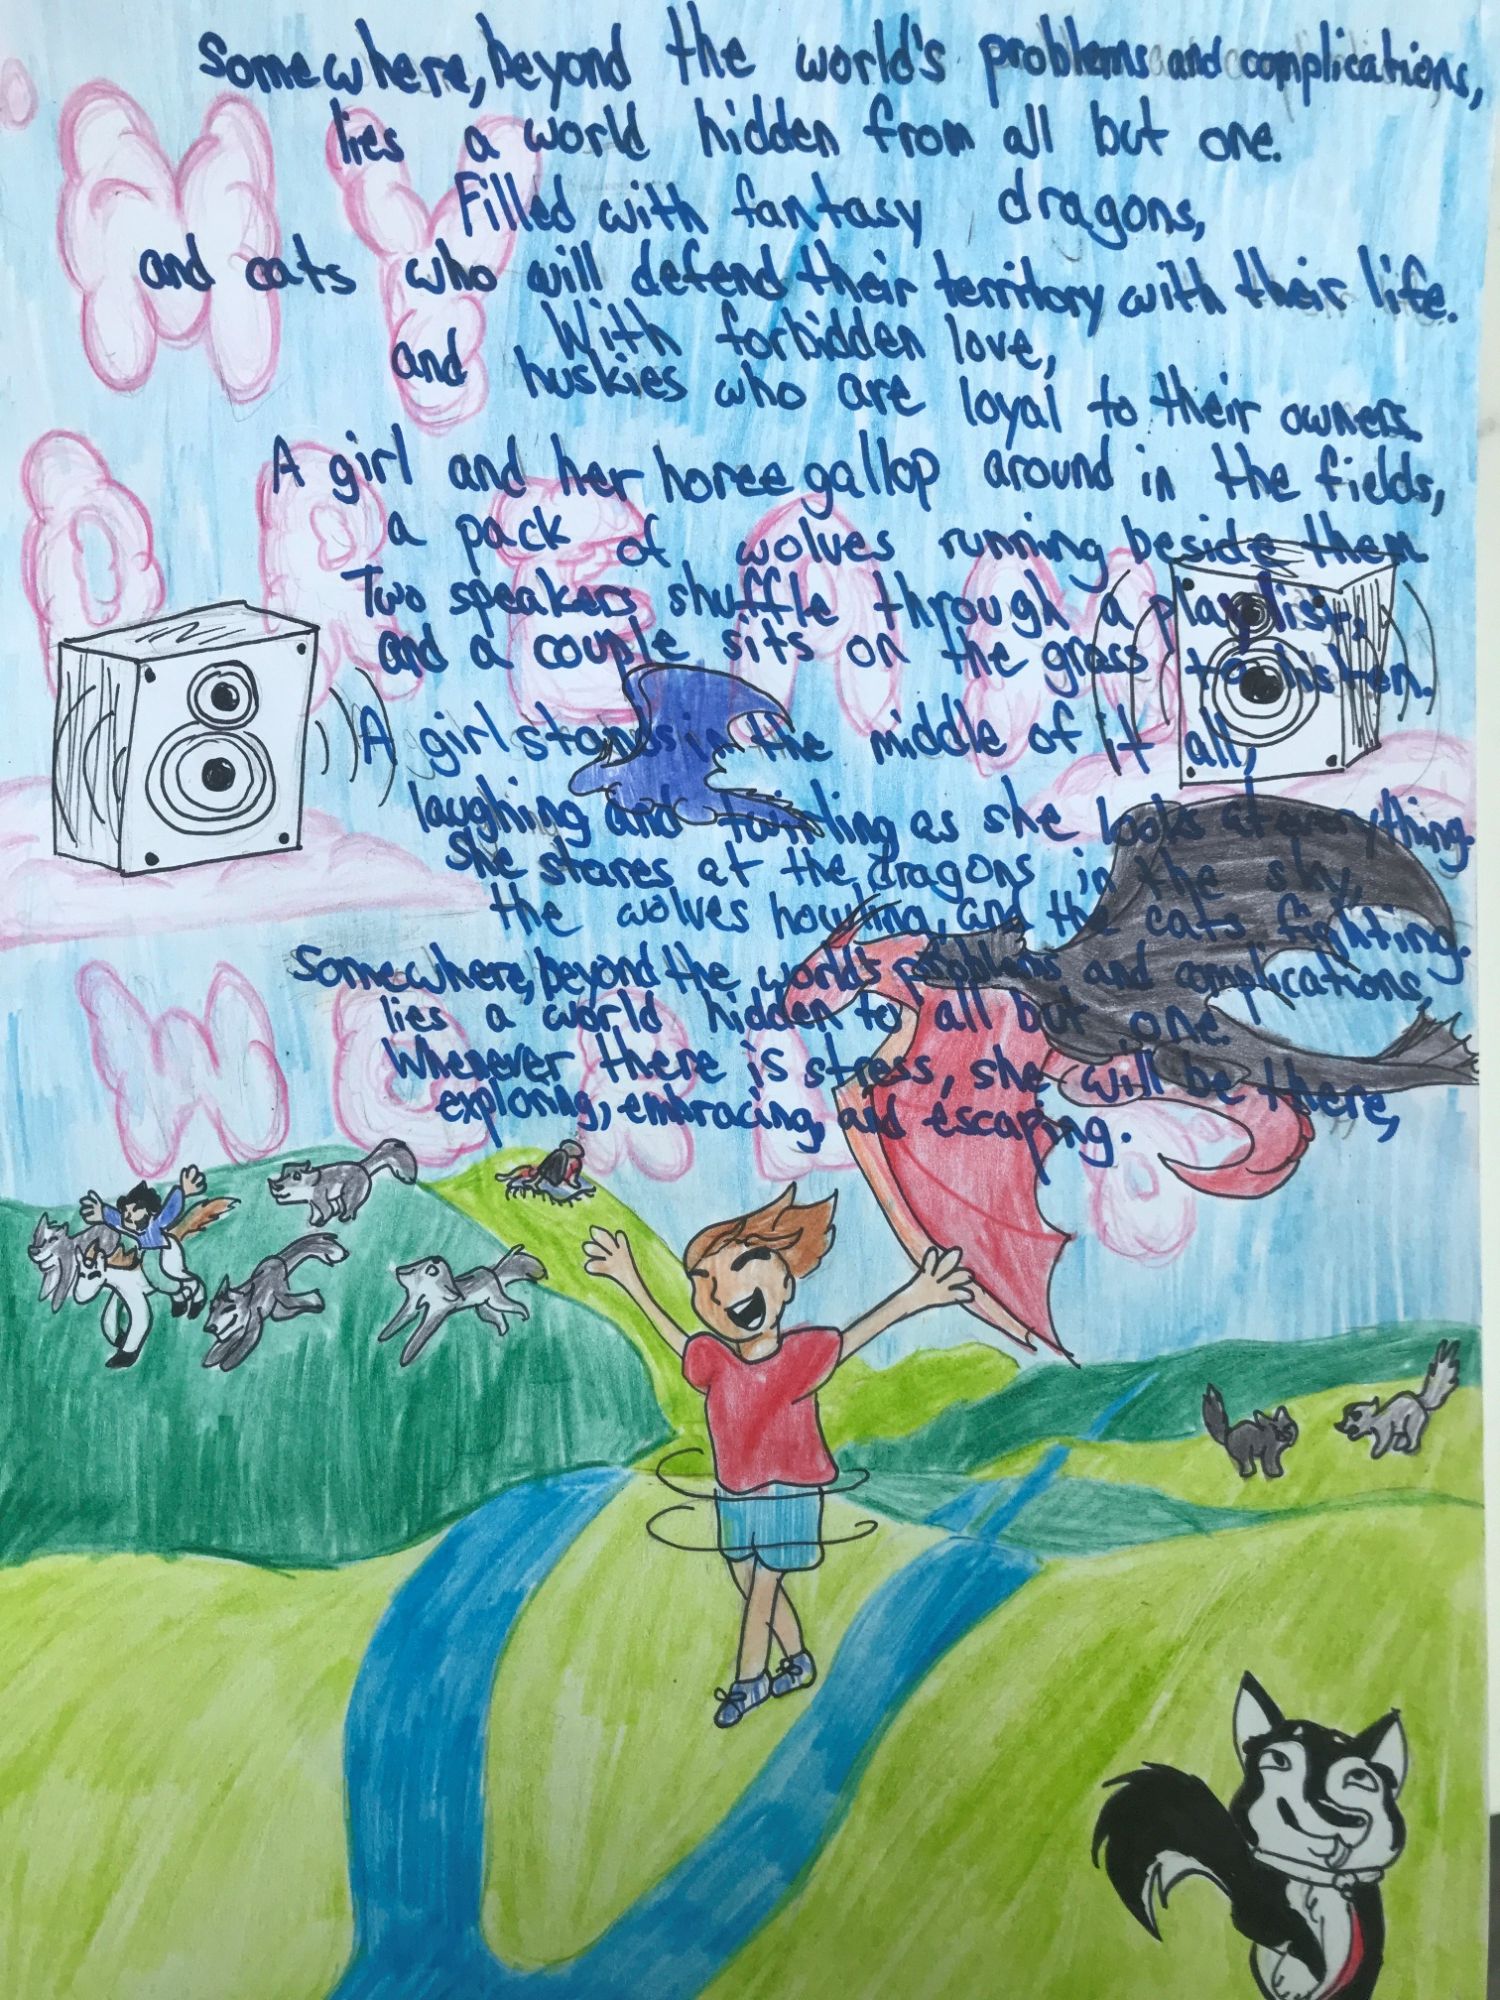 MY
DREAM
WORLD
Somewhere, beyond the world's problems and complications,
lies a world hidden from all but one.
Filled with fantasy dragons,
and cats who will defend their territory with their life.
With forbidden love,
and huskies who are loyal to their owners.
A girl and her horse gallop around in the fields,
a pack of wolves running beside them
Two speakers shuffle through a playlist,
and a couple sits on the grass to listen.
A girl stands in the middle of it all,
laughing and twirling as she looks at everything.
She stares at the dragons in the sky,
the wolves howling, and the cats fighting.
Somewhere, beyond the world's problems and complications,
lies a world hidden to all but one.
Whenever there is stress, she will be there,
exploring, embracing, and escaping.